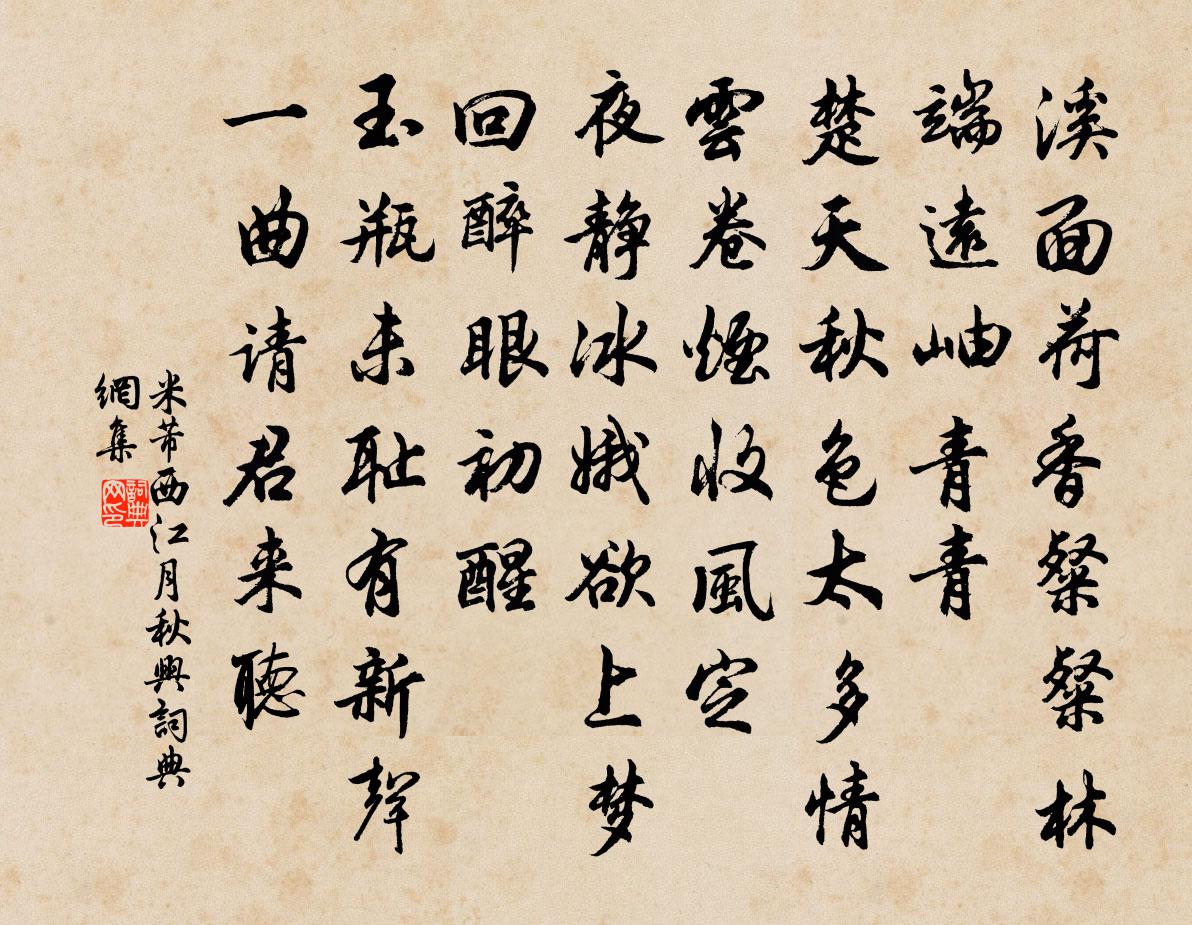 溪面荷香粲粲林
端遠岫青青
楚天秋色太多情
雲卷煙收風定
夜静冰娥欲上梦
回醉眼初醒
玉瓶未耻有新聲
一曲请君来聽
米芾西江月秋興詞典
網集
詞典
网印